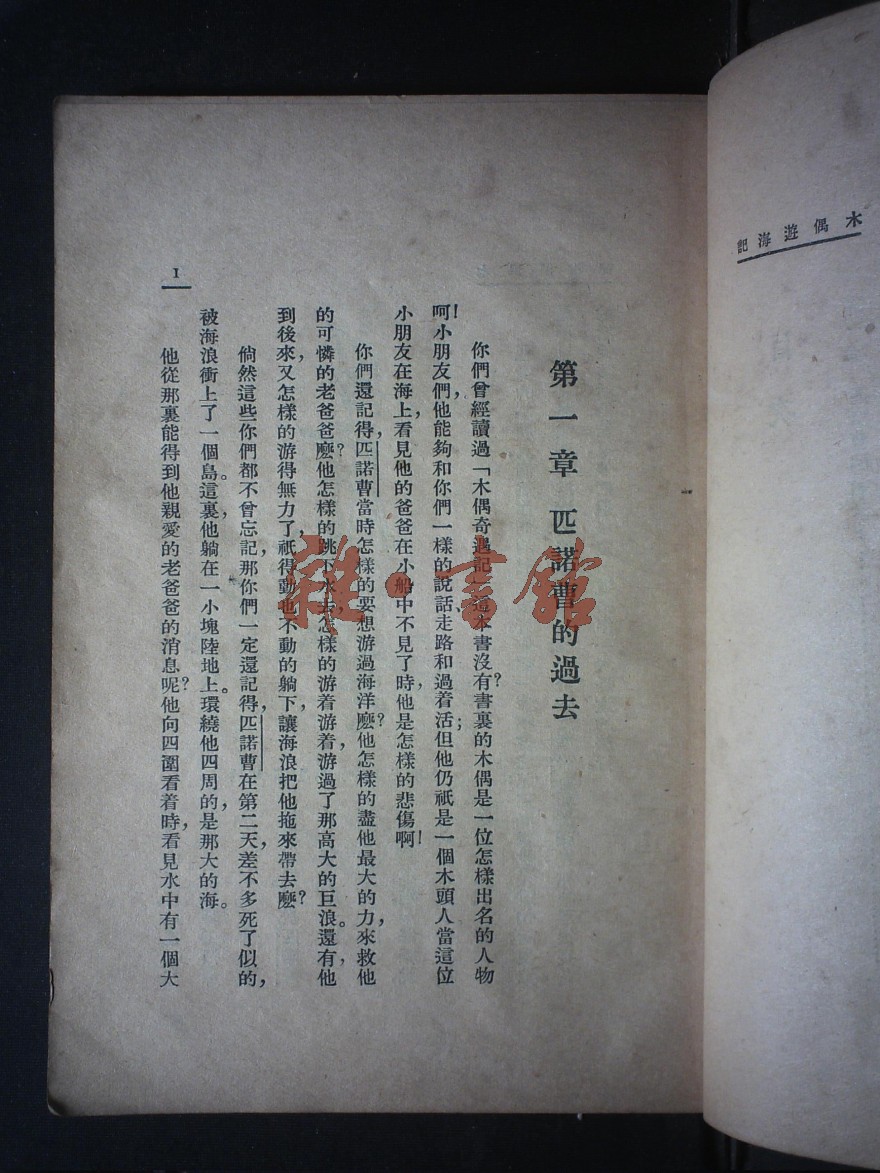 木偶遊海記
第一章 匹諾曹的過去
你們曾經讀過「木偶奇遇記」這本書沒有?書裏的木偶是一位怎樣出名的人物
呵!小朋友們,他能夠和你們一樣的說話、走路和過着活;但他仍祇是一個木頭人當這位
小朋友在海上,看見他的爸爸在小船中不見了時,他是怎樣的悲傷啊!
你們還記得,匹諾曹當時怎樣的要想游過海洋麽?他怎樣的盡他最大的力,來救他
的可憐的老爸爸麽?他怎樣的跳下水去,怎樣的游着游着,游過了那高大的巨浪。還有,他
到後來,又怎樣的游得無力了,祇得動也不動的躺下,讓海浪把他拖來帶去麽?
倘然這些你們都不曾忘記,那你們一定還記得,匹諾曹在第二天,差不多死了似的,
被海浪衝上了一個島。這裏,他躺在一小塊陸地上。環繞他四周的,是那大的海。
他從那裏能得到他親愛的老爸爸的消息呢?他向四圍看着時,看見水中有一個大
1
雜·書館